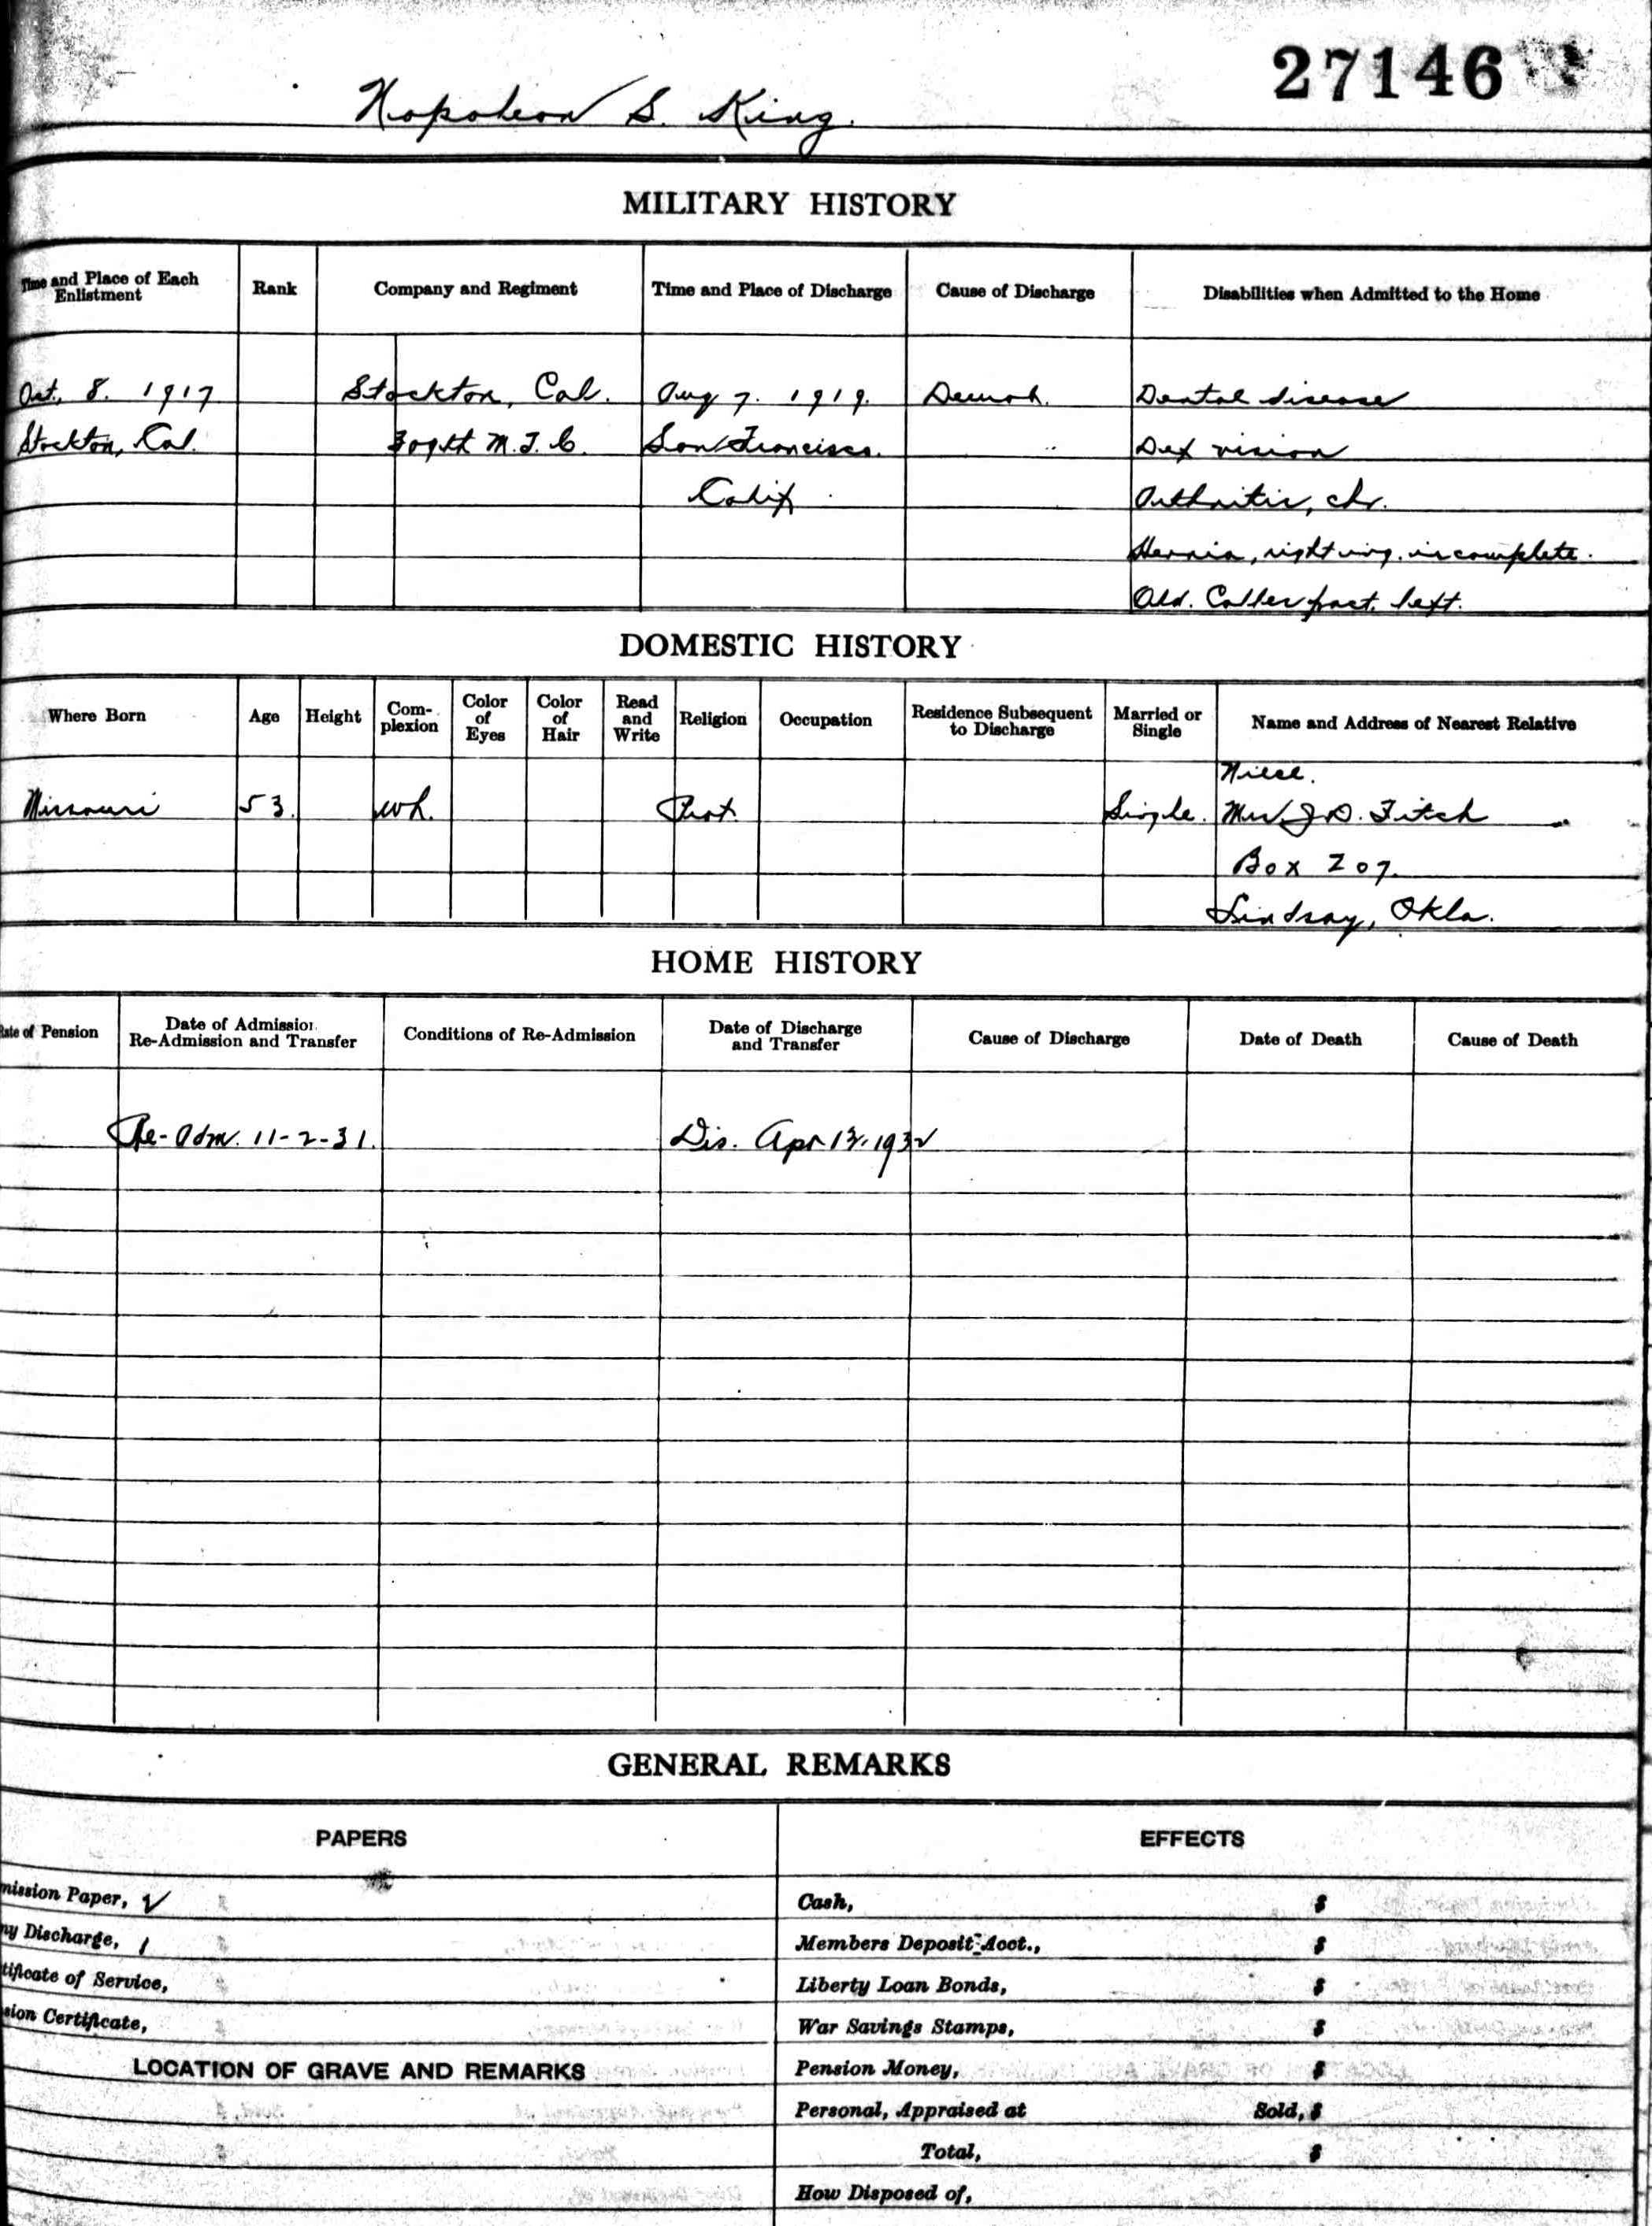 27146
Napoleon S. King.
MILITARY HISTORY
Time and Place of Each Enlistment Rank Company and Regiment Time and Place of Discharge Cause of Discharge Disabilities when Admitted to the Home
Oct. 8. 1917 Stockton, Cal. Aug 7. 1919. Demob. Dental disease
Stockton, Cal. 309th M.T.C. San Francisco. " Def vision
Calif Arthritis, chr.
Hernia, right ing. incomplete.
Old. Colles fract. left.
DOMESTIC HISTORY
Where Born Age Height Com-plexion Color of Eyes Color of Hair Read and Write Religion Occupation Residence Subsequent to Discharge Married or Single Name and Address of Nearest Relative
Niece.
Missouri 53. wh. Prot. Single. Mrs J.D. Fitch
Box 207.
Lindsay, Okla.
HOME HISTORY
Rate of Pension Date of Admission Re-Admission and Transfer Conditions of Re-Admission Date of Discharge and Transfer Cause of Discharge Date of Death Cause of Death
Re-Adm. 11-2-31. Dis. Apr 1932
GENERAL REMARKS
PAPERS EFFECTS
mission Paper, √ Cash, $
my Discharge, 1 Members Deposit Acct., $
tificate of Service, Liberty Loan Bonds, $
sion Certificate, War Savings Stamps, $
LOCATION OF GRAVE AND REMARKS Pension Money, $
Personal, Appraised at Sold, $
Total, $
How Disposed of,